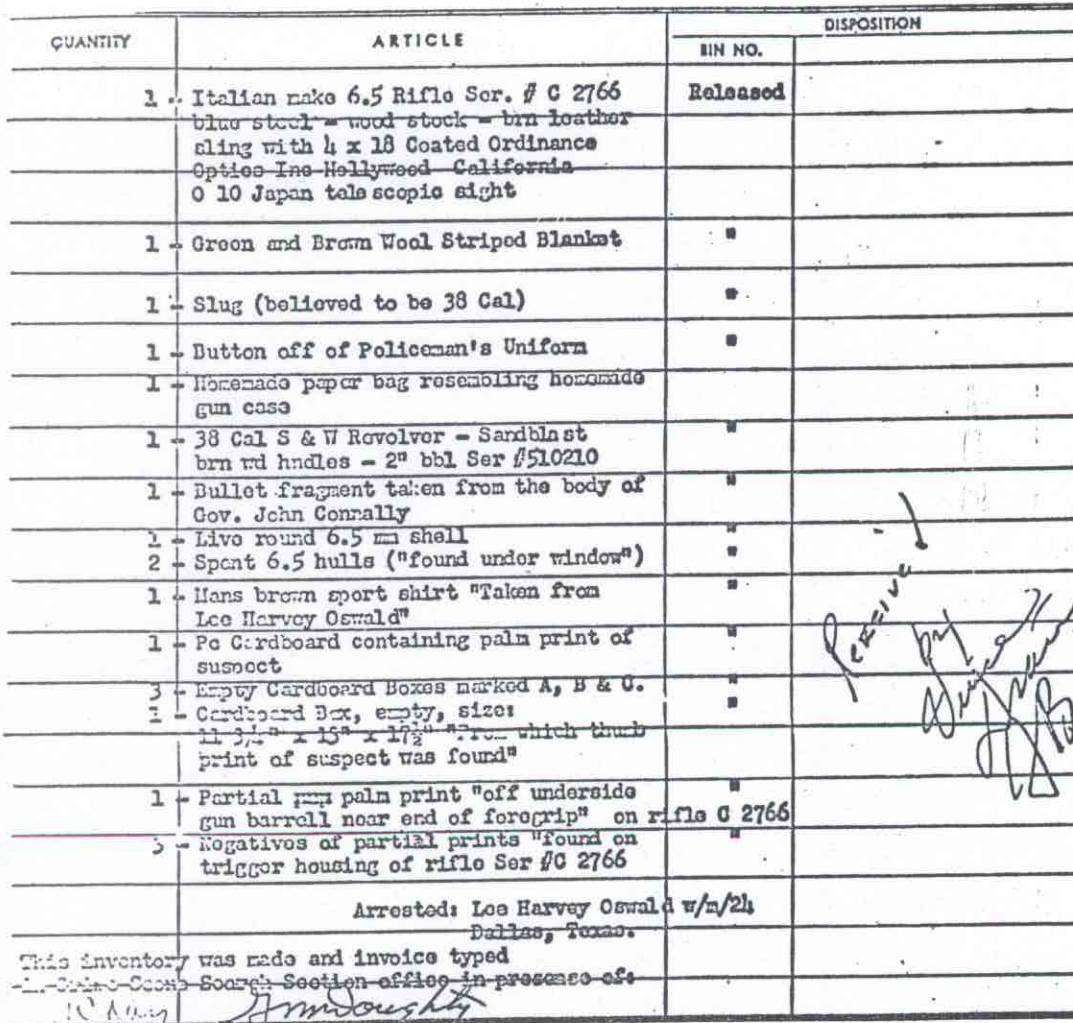 DISPOSITION
QUANTITY ARTICLE BIN NO.
1 - Italian make 6.5 Rifle Ser. # C 2766 Released
blue steel - wood stock - brn leather
sling with 4 x 18 Coated Ordinance
Optics Inc Hollywood California
0 10 Japan tele scopic sight
1 - Green and Brown Wool Striped Blanket "
1 - Slug (believed to be 38 Cal) "
1 - Button off of Policeman's Uniform "
1 - Homemade paper bag resembling homemide
gun case
1 - 38 Cal S & W Revolver - Sandblast "
brn wd hndles - 2" bbl Ser #510210
1 - Bullet fragment taken from the body of "
Gov. John Connally
1 - Live round 6.5 mm shell "
2 - Spent 6.5 hulls ("found under window") "
1 - Mans brown sport shirt "Taken from "
Lee Harvey Oswald"
1 - Pc Cardboard containing palm print of "
suspect
3 - Empty Cardboard Boxes marked A, B & C. "
1 - Cardboard Box, empty, size: "
11 3/4" x 15" x 17½" "From which thumb
print of suspect was found"
1 - Partial palm print "off underside "
gun barrell near end of foregrip" on rifle C 2766
3 - Negatives of partial prints "found on "
trigger housing of rifle Ser #C 2766
Arrested: Lee Harvey Oswald w/m/24
Dallas, Texas.
This inventory was made and invoice typed
Crime Scene Search Section office in presence of:
JC Day GM Doughty
Received
by